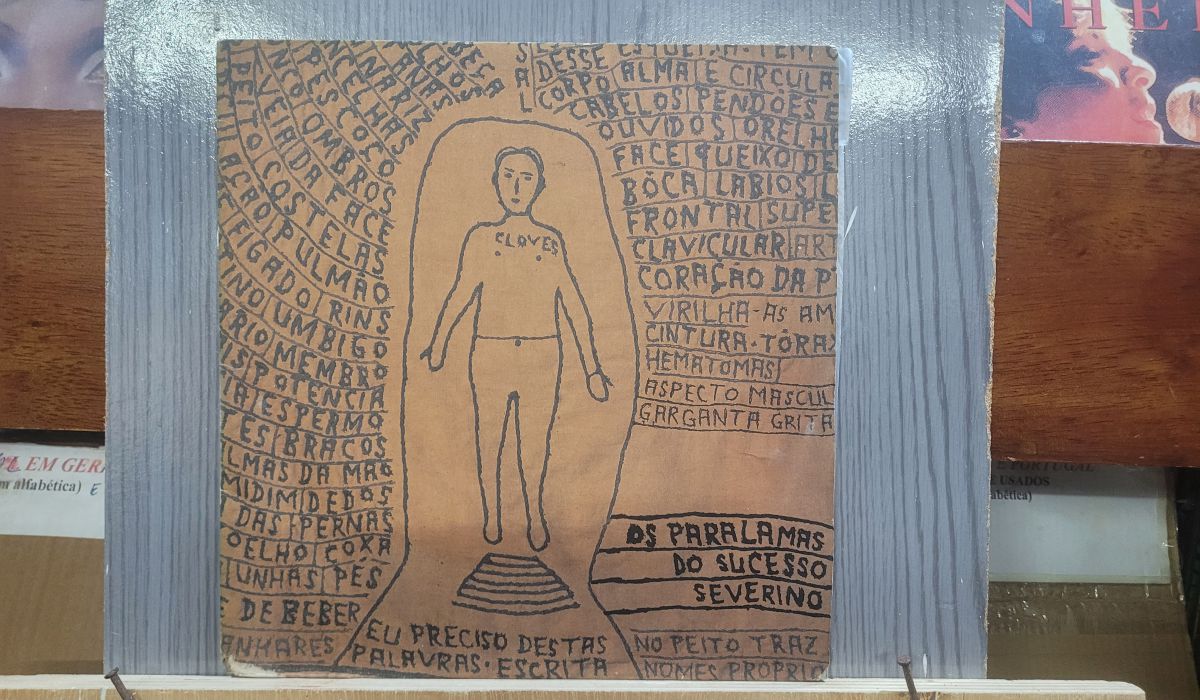 NHE
BEÇA
LHOS
ANAS
NARIZ
NCELHAS
PESCOÇO
OMBROS
VEIA DA FACE
PEITO COSTELAS
AÇÃO PULMÃO
FIGADO RINS
TINO UMBIGO
ARIO MEMBRO
POTENCIA
ESPERMO
BRAÇOS
LMAS DA MÃO
MIDIM DEDOS
DAS PERNAS
OELHO COXA
UNHAS PES
DE BEBER
ANHARES
SAL
DESSE
CORPO ALMA E CIRCULA
CABELOS PENDÕES E
OUVIDOS ORELH
FACE QUEIXO DE
BÔCA LABIOS L
FRONTAL SUPE
CLAVICULAR ART
CORAÇÃO DA P
VIRILHA-AS AM
CINTURA-TÓRAX
HEMATOMAS
ASPECTO MASCUL
GARGANTA GRITA
CLOVES
OS PARALAMAS
DO SUCESSO
SEVERINO
EU PRECISO DESTAS
PALAVRAS-ESCRITA
NO PEITO TRAZ
NOMES PROPRIO
EM GER
m alfabética) E
E PORTUGAL
E USADOS
abética)